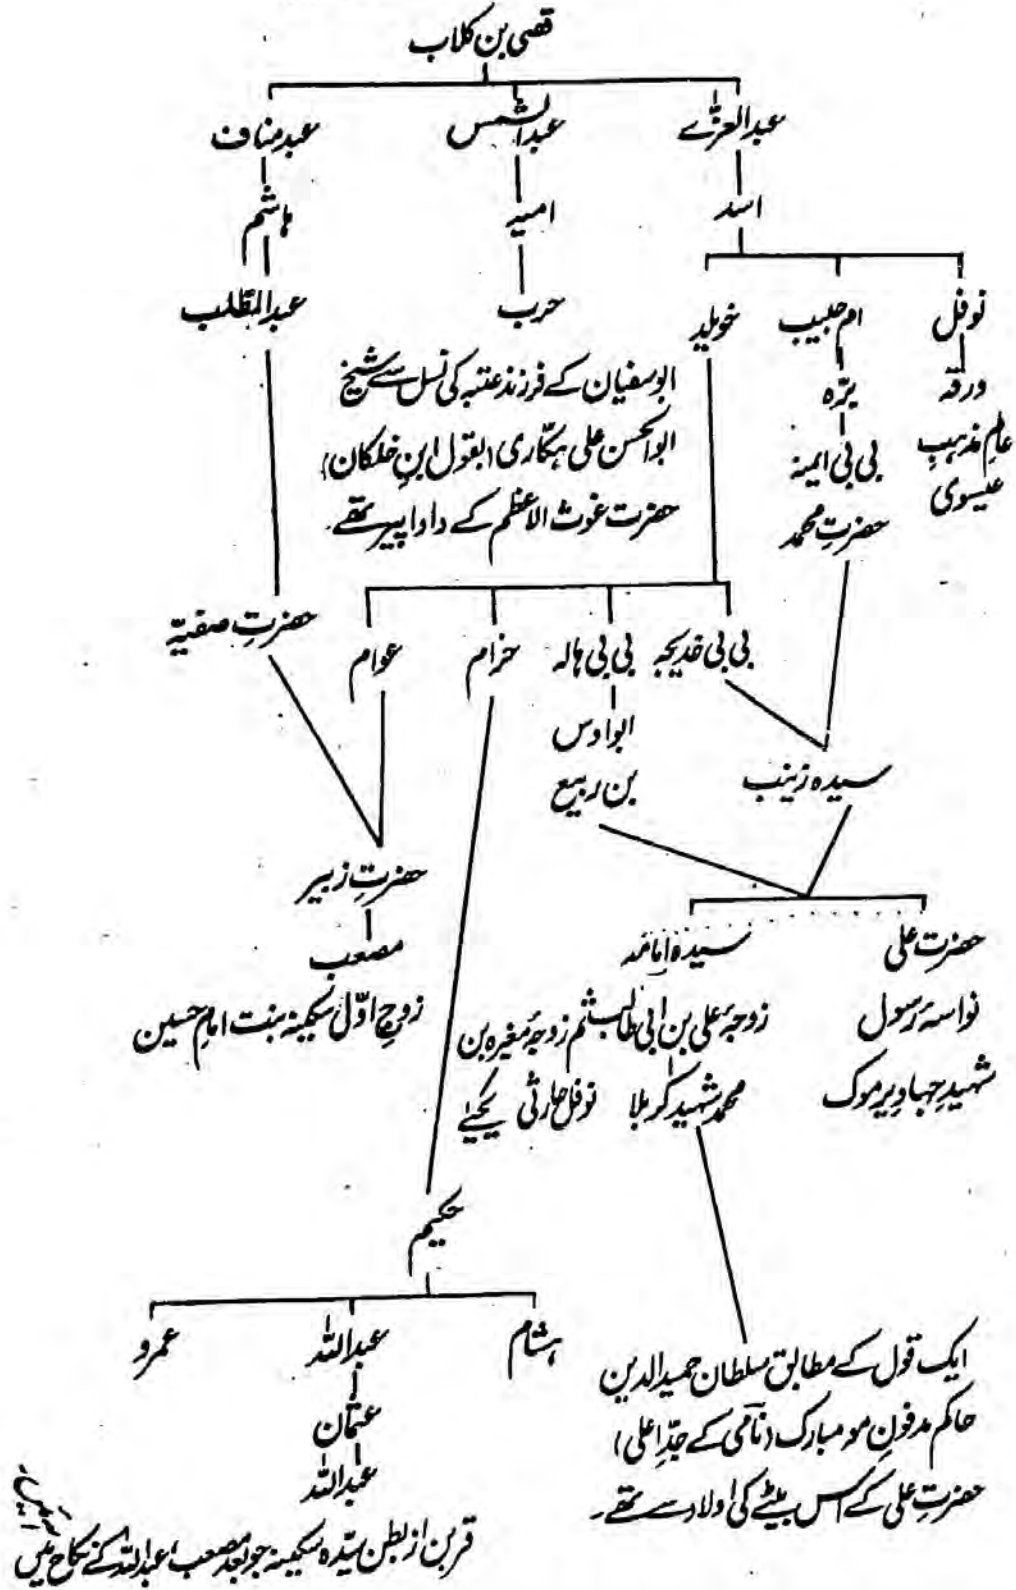 قصی بن کلاب
عبدالعزّے
عبدالشمس
عبدمناف
اسد
امیہ
ہاشم
نوفل
ام حبیب
خویلد
حرب
عبدالمطّلب
ورقہ
عالمِ مذہبِ
عیسوی
برّہ
بی بی ایمنہ
حضرتِ محمد
ابوسفیان کے فرزند عتبہ کی نسل سے شیخ
ابوالحسن علی ہکّاری (بقول ابنِ خلکان)
حضرت غوث الاعظم کے دادا پیر تھے۔
بی بی خدیجہ
بی بی ہالہ
حزام
عوام
حضرتِ صفیہ
ابوادس
بن ربیع
سیدہ زینب
حضرتِ زبیر
مصعب
زوجِ اوّل سکینہ بنت امام حسین
حضرتِ علی
نواسۂ رسول
شہیدِ جہادِ یرموک
سیدہ امامہ
زوجۂ علی بن ابی طالب ثم زوجۂ مغیرہ بن
نوفل حارثی
محمد شہید کربلا
حکیم
ہشام
عبداللہ
عمرو
عثمان
عبداللہ
قرین از بطن سیّدہ سکینہ جو بعد مصعب، عبداللہ کے نکاح میں
آئیں۔
ایک قول کے مطابق سلطان حمید الدین
حاکم مدفونِ مو مبارک (نامی کے جدِّ اعلی)
حضرتِ علی کے اس بیٹے کی اولاد سے تھے۔